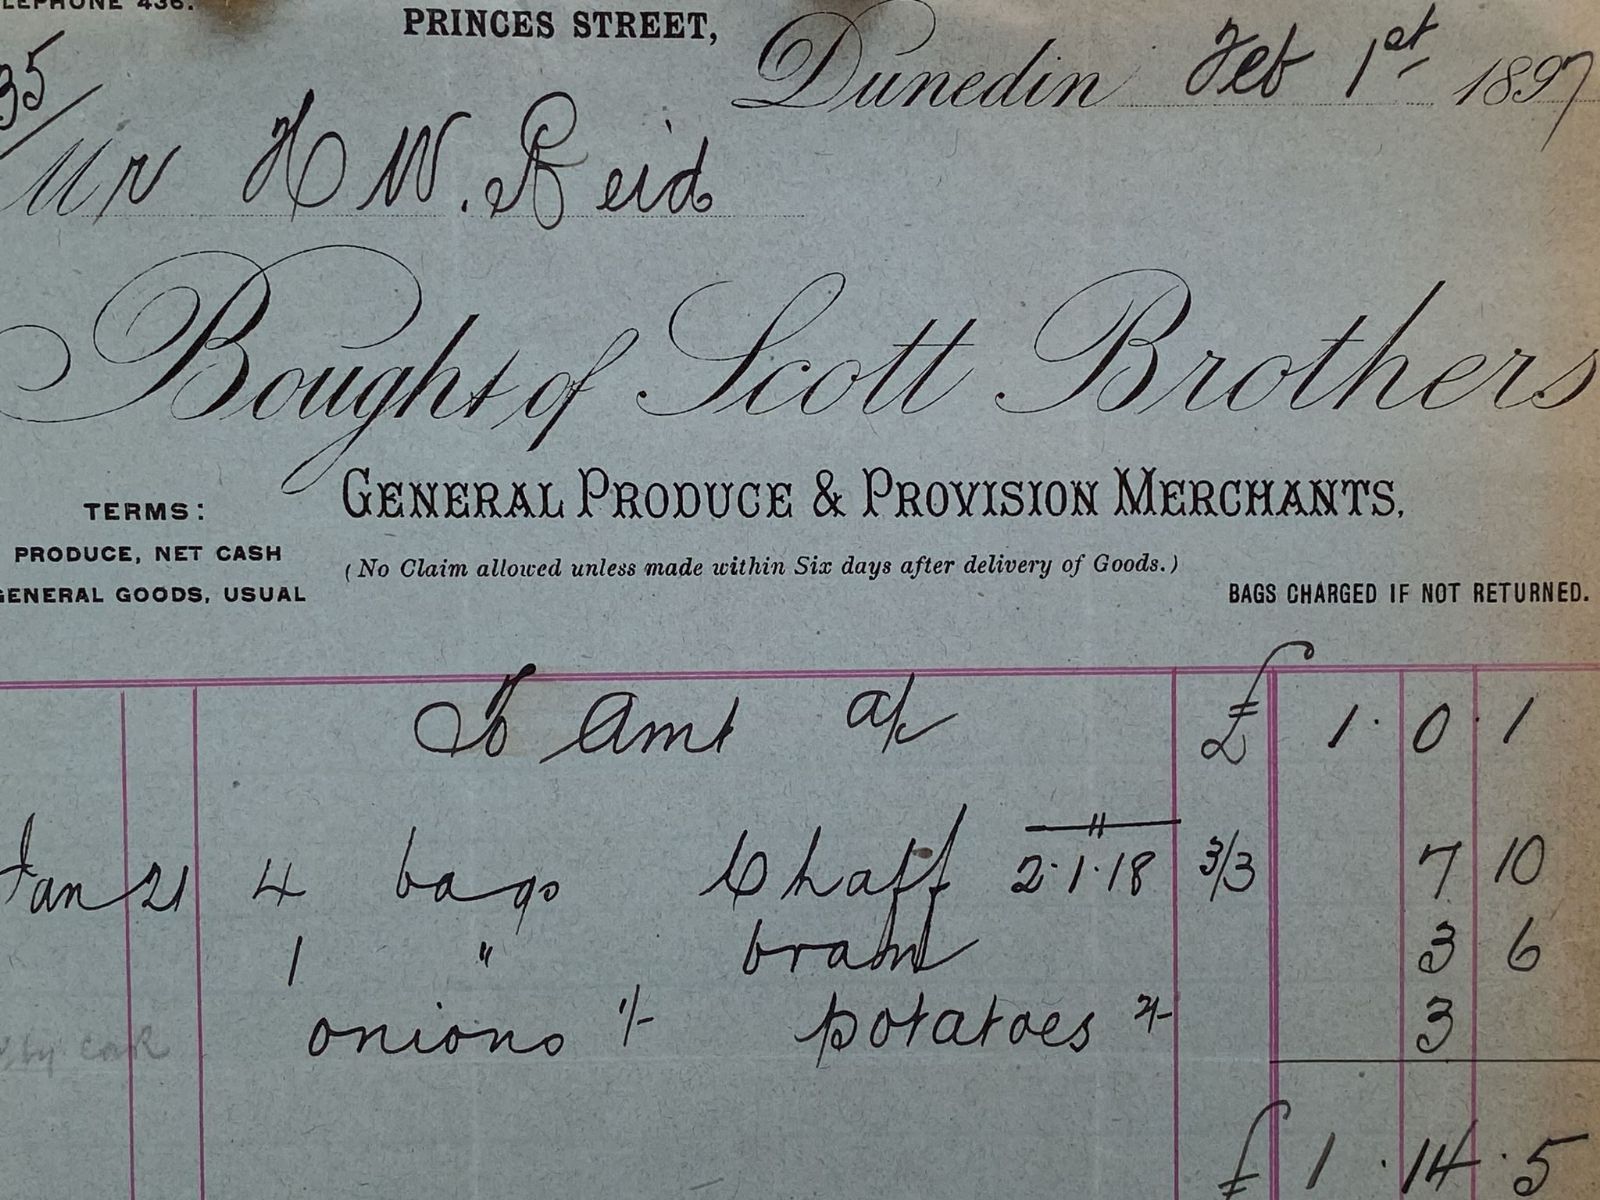 TELEPHONE 436.
PRINCES STREET,
Dunedin Feb 1st 1897
35/
Mr H W. Reid
Bought of Scott Brothers
GENERAL PRODUCE & PROVISION MERCHANTS.
TERMS:
PRODUCE, NET CASH
GENERAL GOODS, USUAL
(No Claim allowed unless made within Six days after delivery of Goods.)
BAGS CHARGED IF NOT RETURNED.
To Amt a/c £ 1 . 0 . 1
Jan 21 4 bags Chaff 2·1·18 3/3 7 10
1 " bran 3 6
onions 1/- potatoes 2/- 3
£ 1 . 14 . 5